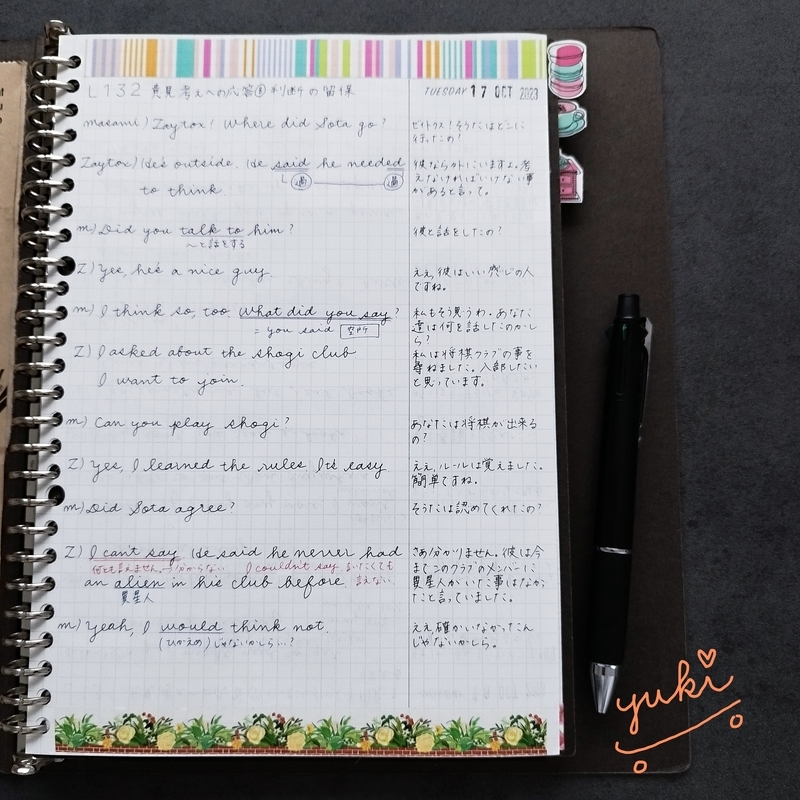 L132 意見考えへの応答⑧判断の留保
TUESDAY 17 OCT 2023
masami) Zaytox! Where did Sota go?
ゼイトクス!そうたはどこに
行ったの?
Zaytox) He's outside. He said he needed
過 過
to think.
彼なら外にいますよ。考
えなければいけない事
があると言って。
m) Did you talk to him?
〜と話をする
彼と話をしたの?
Z) Yes, he's a nice guy.
ええ、彼はいい感じの人
ですね。
m) I think so, too. What did you say?
= you said 空所
私もそう思うわ。あなた
達は何を話したのかし
ら?
Z) I asked about the shogi club
I want to join.
私は将棋クラブの事を
尋ねました。入部したい
と思っています。
m) Can you play shogi?
あなたは将棋が出来る
の?
Z) Yes, I learned the rules. It's easy
ええ、ルールは覚えました。
簡単ですね。
m) Did Sota agree?
そうたは認めてくれたの?
Z) I can't say. He said he never had
何とも言えません→分からない I couldn't say 言いたくても
言えない
an alien in his club before.
異星人
さあ分かりません。彼は今
までこのクラブのメンバーに
異星人がいた事はなかっ
たと言っていました。
m) Yeah, I would think not.
(ひかえめ)じゃないかしら…?
ええ確かいなかったん
じゃないかしら。
yuki